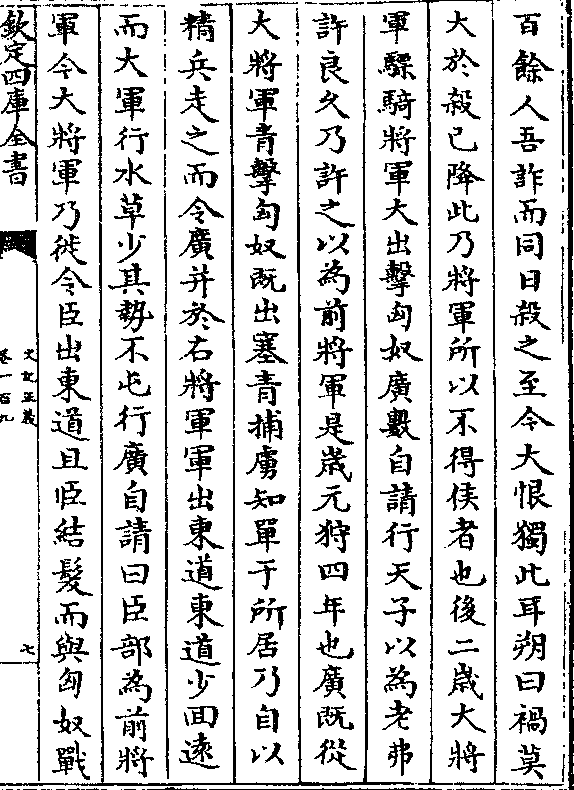 百餘人吾詐而同日殺之至今大恨獨此耳朔曰禍莫
大於殺已降此乃將軍所以不得侯者也後二歲大將
軍驃騎將軍大出擊匈奴廣數自請行天子以為老弗
許良久乃許之以為前將軍是歲元狩四年也廣既從
大將軍青擊匈奴既出塞青捕虜知單于所居乃自以
精兵走之而令廣并於右將軍軍出東道東道少回逺
而大軍行水草少其勢不屯行廣自請曰臣部為前將
軍今大將軍乃徙令臣出東道且臣結髮而與匈奴戰
欽定四庫全書
史記正義
卷一百九
七